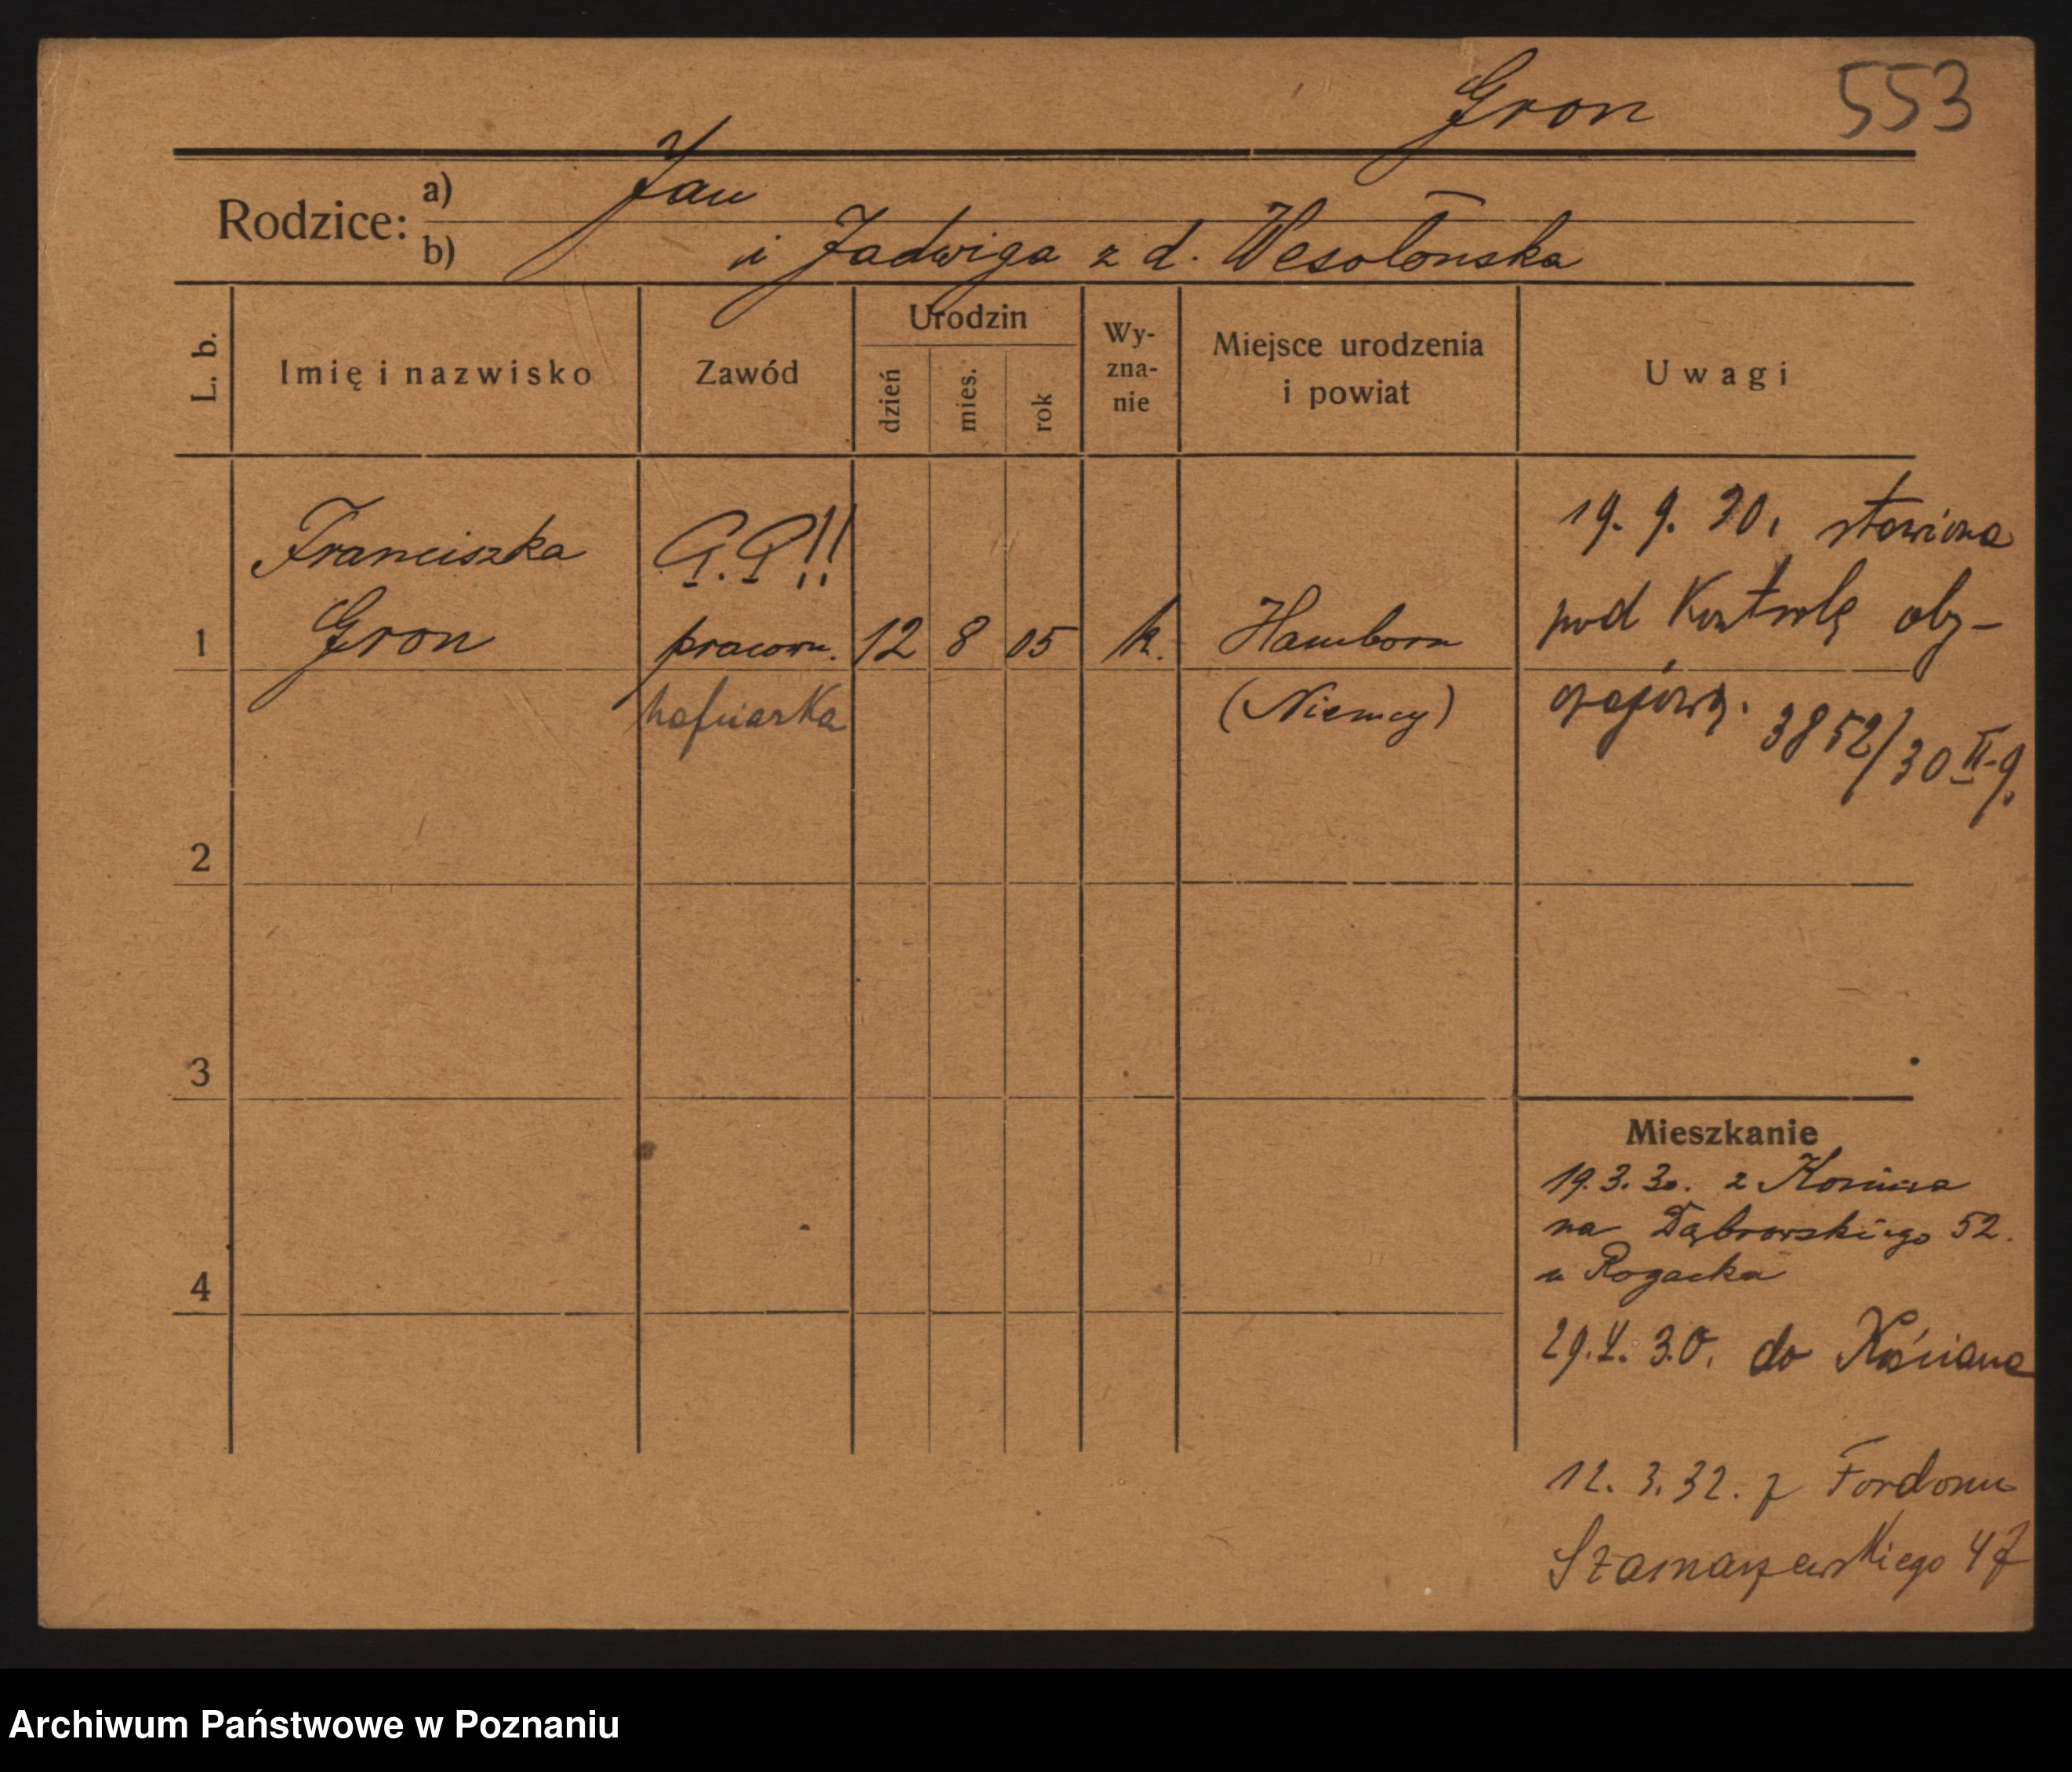 Gron 553
Rodzice: a) Jan
b) i Jadwiga z d. Wesołowska
L. b. Imię i nazwisko Zawód Urodzin dzień mies. rok Wyzna-nie Miejsce urodzenia i powiat Uwagi
Franciszka
1 Gron pracown. 12 8 05 k. Hamborn
hafciarka (Niemcy)
19. 9. 30. stawiona
pod kontrolę oby-
czajową. 3852/30 II-g.
2
3
4
Mieszkanie
19. 3. 30. z
na Dąbrowskiego 52.
u Rogacka
29. 30. do Kościana
12. 3. 32. z Fordonu
Szamarzewskiego 47
Archiwum Państwowe w Poznaniu